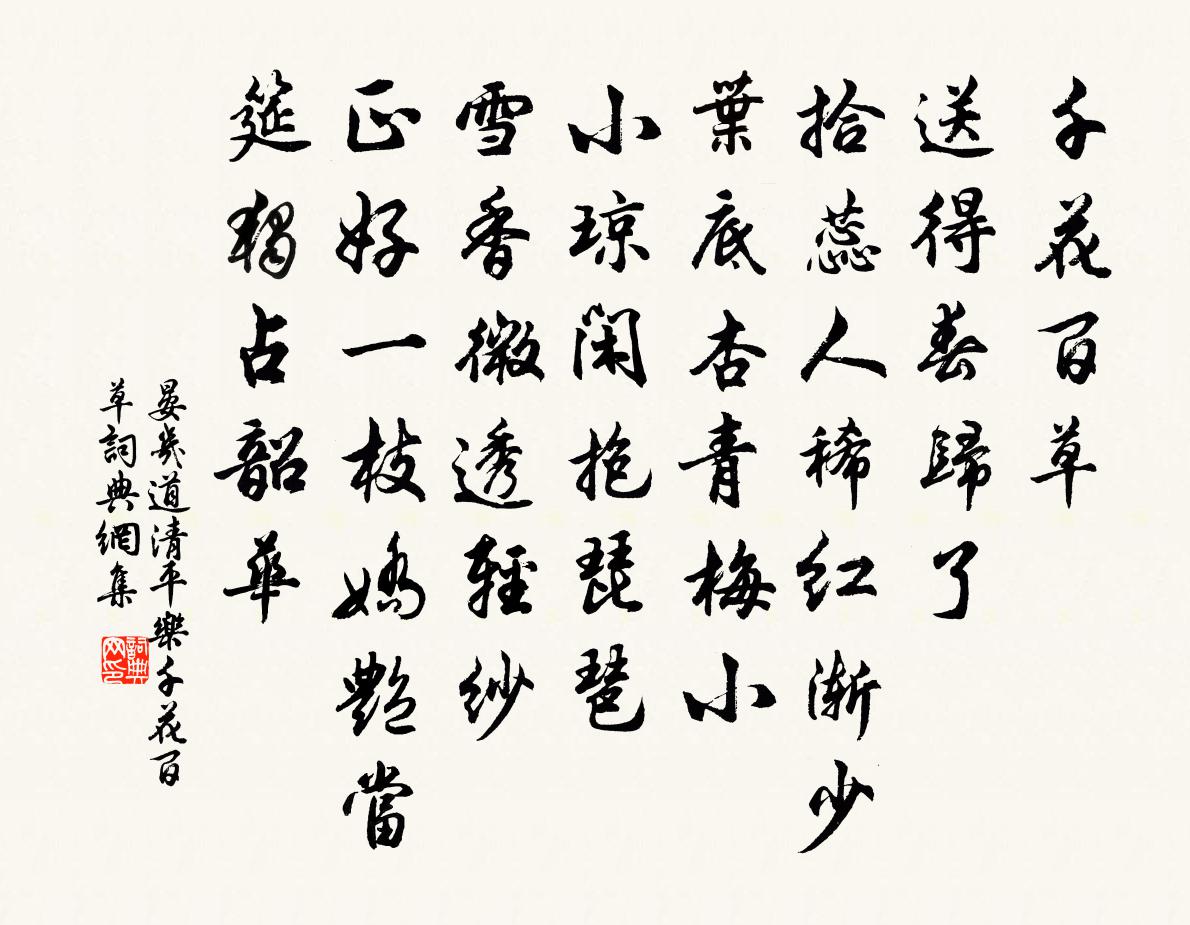 千花百草
送得春歸了
拾蕊人稀紅漸少
葉底杏青梅小
小瓊閑抱琵琶
雪香微透輕紗
正好一枝嬌艷當
筵獨占韶華
晏幾道清平樂千花百
草詞典網集
詞典网印